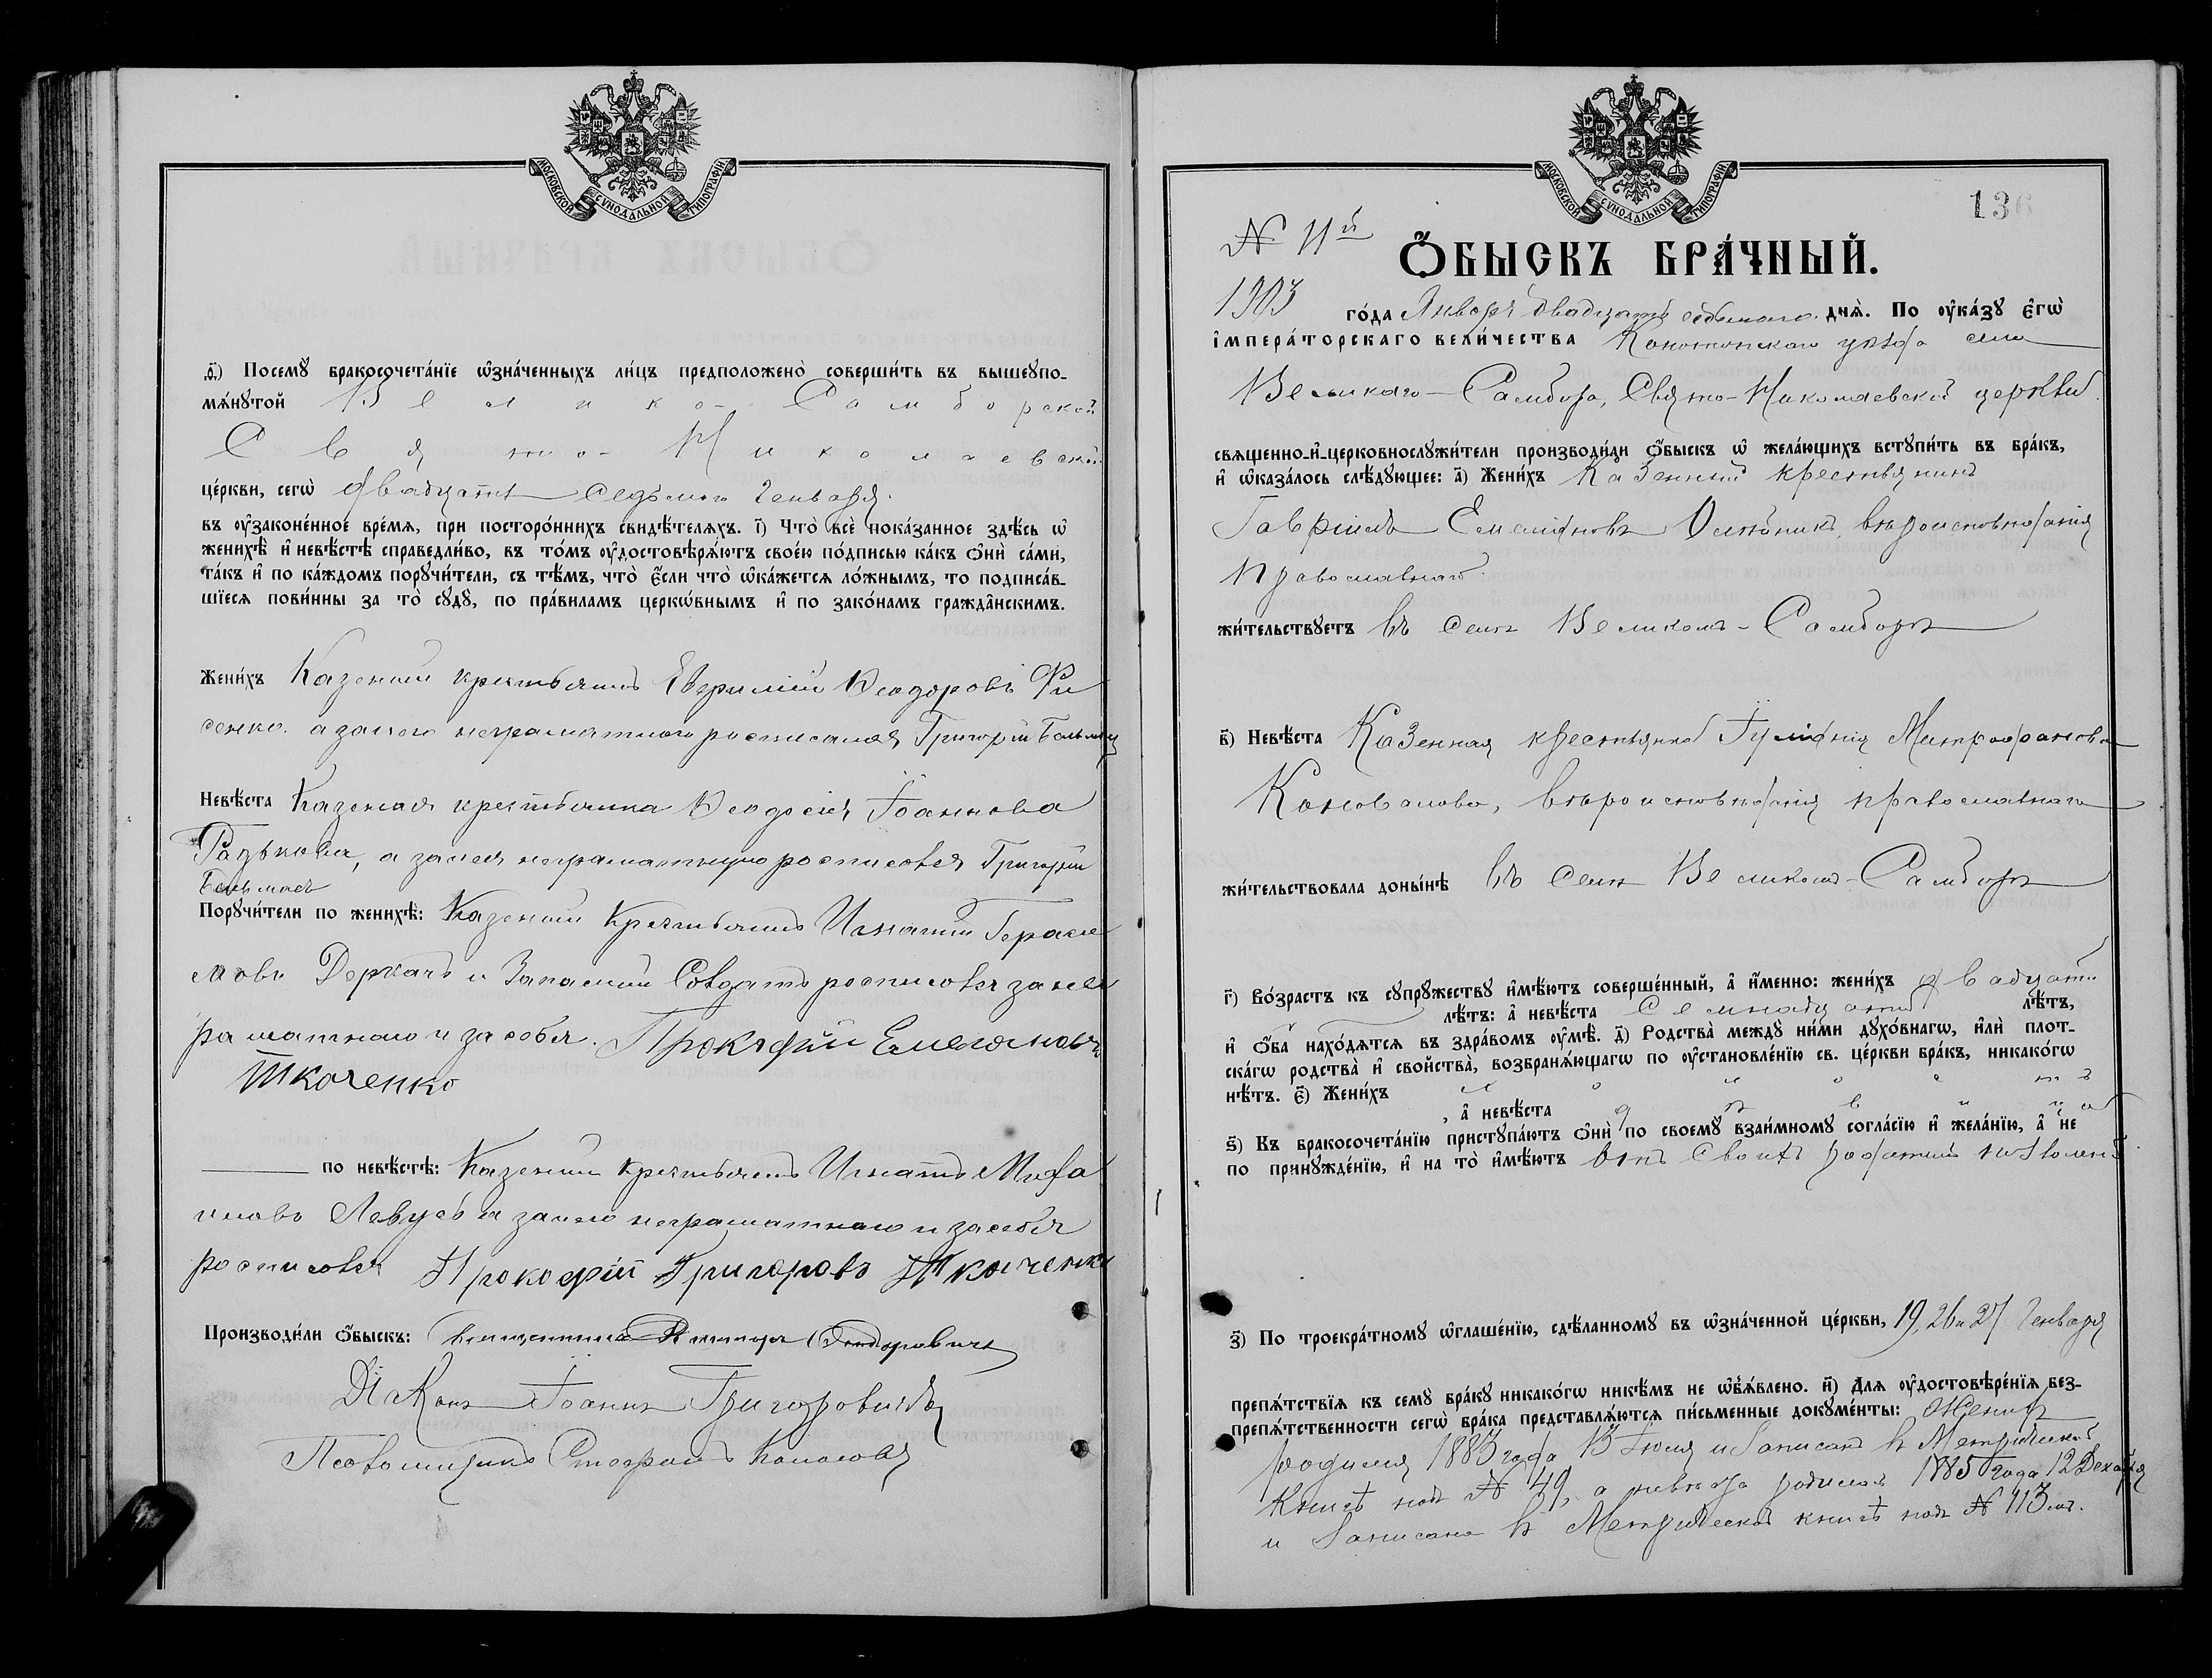 МОСКОВСКОЙ СУНОДАЛЬНОЙ ТИПОГРАФІИ
ѳ҃) Посемꙋ бракосочета́нїе ѡ҆зна́ченныхъ ли́цъ предположено̀ соверши́ть въ вышеꙋпо-
мѧ́нꙋтой Велико-Самборской
Свято-Николаевской
це́ркви, сегѡ̀ двадцать седьмого Генваря.
въ ѹ҆законе́нное вре́мѧ, при посторо́ннихъ свидѣ́телѧхъ. і҃) Что̀ всѐ пока́занное здѣ́сь ѡ҆
женихѣ̀ и҆ невѣ́стѣ справедли́во, въ то́мъ ѹ҆достовѣрѧ́ютъ свое́ю по́дписью ка́къ ѻ҆нѝ са́ми,
та́къ и҆ по ка́ждомъ порꙋчи́тели, съ тѣ́мъ, что̀ є҆́сли что̀ ѡ҆ка́жетсѧ ло́жнымъ, то подписа́в-
шїесѧ пови́нны за то̀ сꙋдꙋ̀, по пра́виламъ церко́внымъ и҆ по зако́намъ гражда̑нскимъ.
Жени́хъ Казеный крестьянинъ Евфимій Ѳеодоровъ Фи
сенко. а занего неграматного росписался Григорій
Невѣ́ста Казеная крестьянка Ѳеодосія Іоаннова
Радькова, а занея неграматную росписовся Григорій
Порꙋчи́тели по женихѣ̀: Казеный Крестьянинъ Игнатій Гераси
мовъ Деркачъ и Запасный Солдатъ росписовся за нег
раматного и за собя. Прокофій Емеляновъ
Ткаченко
по невѣ́стѣ: Казеный крестьянинъ Игнатъ
новъ а занего неграматного и засебя
росписовся Прокофій Григоровъ Ткаченко
Производи́ли ѻ҆́быскъ: Священникъ
Діаконъ Іоаннъ Григоровичъ
Псаломщикъ Стефанъ
МОСКОВСКОЙ СУНОДАЛЬНОЙ ТИПОГРАФІИ
136
№ 11й
Ѻ҆́БЫСКЪ БРА́ЧНЫЙ.
1903 го́да Января двадцать седьмаго днѧ̀. По ѹ҆ка́зꙋ є҆гѡ̀
і҆мпера́торскаго вели́чества Конотопскаго уѣзда села
Великаго-Самбора, Свято-Николаевской церкви
свѧщенно-и҆-церковнослꙋжи́тели производи́ли ѻ҆́быскъ ѡ҆ жела́ющихъ встꙋпи́ть въ бра́къ,
и҆ ѡ҆каза́лось слѣ́дꙋющее: а҃) Жени́хъ Казенный крестьянинъ
Гавріилъ Емеліановъ Олейникъ, вѣроисповѣданія
православнаго.
жи́тельствꙋетъ въ селѣ Великомъ-Самборѣ
в҃) Невѣ́ста Казенная крестьянка Іуліанія Митрофанова
Коновалова, вѣроисповѣданія православнаго
жи́тельствовала доны́нѣ въ селѣ Великомъ-Самборѣ
г҃) Во́зрастъ къ сꙋпрꙋ́жествꙋ и҆мѣ́ютъ соверше́нный, а҆ и҆́менно: жени́хъ двадцати
лѣ́тъ: а҆ невѣ́ста семнадцати лѣ́тъ,
и҆ ѻ҆́ба нахо́дѧтсѧ въ здра́вомъ ѹ҆мѣ̀. д҃) Родства̀ междꙋ ни́ми дꙋхо́внагѡ, и҆лѝ плот-
ска́гѡ родства̀ и҆ сво́йства̀, возбранѧ́ющагѡ по ѹ҆становле́нїю св. це́ркви бра́къ, никако́гѡ
нѣ́тъ. є҃) Жени́хъ холостъ
, а҆ невѣ́ста дѣвица
ѕ҃) Къ бракосочета́нїю пристꙋпа́ютъ ѻ҆нѝ по своемꙋ̀ взаи́мномꙋ согла́сїю и҆ жела́нїю, а҆ не
по принꙋжде́нїю, и҆ на то̀ и҆мѣ́ютъ отъ своихъ родителей позволеніе
з҃) По троекра́тномꙋ ѡ҆глаше́нїю, сдѣ́ланномꙋ въ ѡ҆зна́ченной це́ркви, 19, 26 и 27 Генваря
препѧ́тствїѧ къ семꙋ̀ бра́кꙋ никако́гѡ никѣ́мъ не ѡ҆б̾ѧ́влено. и҃) Длѧ ѹ҆достовѣре́нїѧ без-
препѧ́тственности сегѡ̀ бра́ка представлѧ́ютсѧ пи́сьменные докꙋме́нты: Женихъ
родился 1883 года 13 Іюля и Записанъ въ Метрической
книгѣ подъ № 49, а невѣста родилась 1885 года 12 Декабря
и Записана въ Метрической книгѣ подъ № 113мъ.